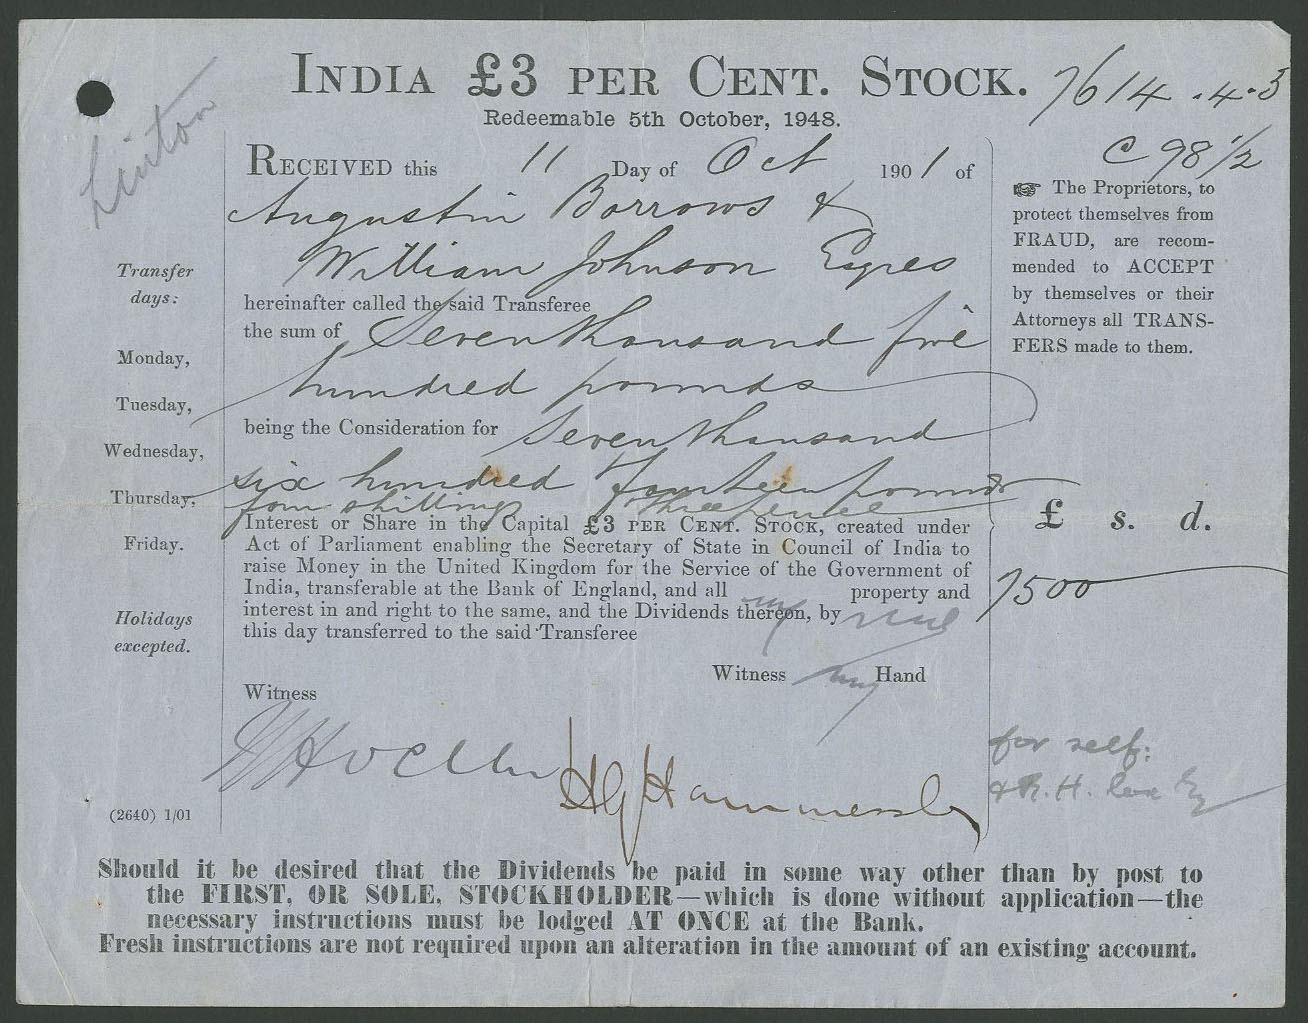 INDIA £3 PER CENT. STOCK.
Redeemable 5th October, 1948.
7614.4.3
C 98 1/2
Linton
RECEIVED this 11 Day of Oct 1901 of
Augustin Borrows &
William Johnson Esqres
hereinafter called the said Transferee
the sum of Seven thousand five
hundred pounds
being the Consideration for Seven thousand
six hundred & fourteen pounds
four shillings & threepence
Interest or Share in the Capital £3 PER CENT. STOCK, created under
Act of Parliament enabling the Secretary of State in Council of India to
raise Money in the United Kingdom for the Service of the Government of
India, transferable at the Bank of England, and all my property and
interest in and right to the same, and the Dividends thereon, by me
this day transferred to the said Transferee
Witness my Hand
Witness
Transfer
days:
Monday,
Tuesday,
Wednesday,
Thursday,
Friday.
Holidays
excepted.
(2640) 1/01
☞ The Proprietors, to
protect themselves from
FRAUD, are recom-
mended to ACCEPT
by themselves or their
Attorneys all TRANS-
FERS made to them.
£ s. d.
7500
for self:
& R. H.
Should it be desired that the Dividends be paid in some way other than by post to
the FIRST, OR SOLE, STOCKHOLDER—which is done without application—the
necessary instructions must be lodged AT ONCE at the Bank.
Fresh instructions are not required upon an alteration in the amount of an existing account.